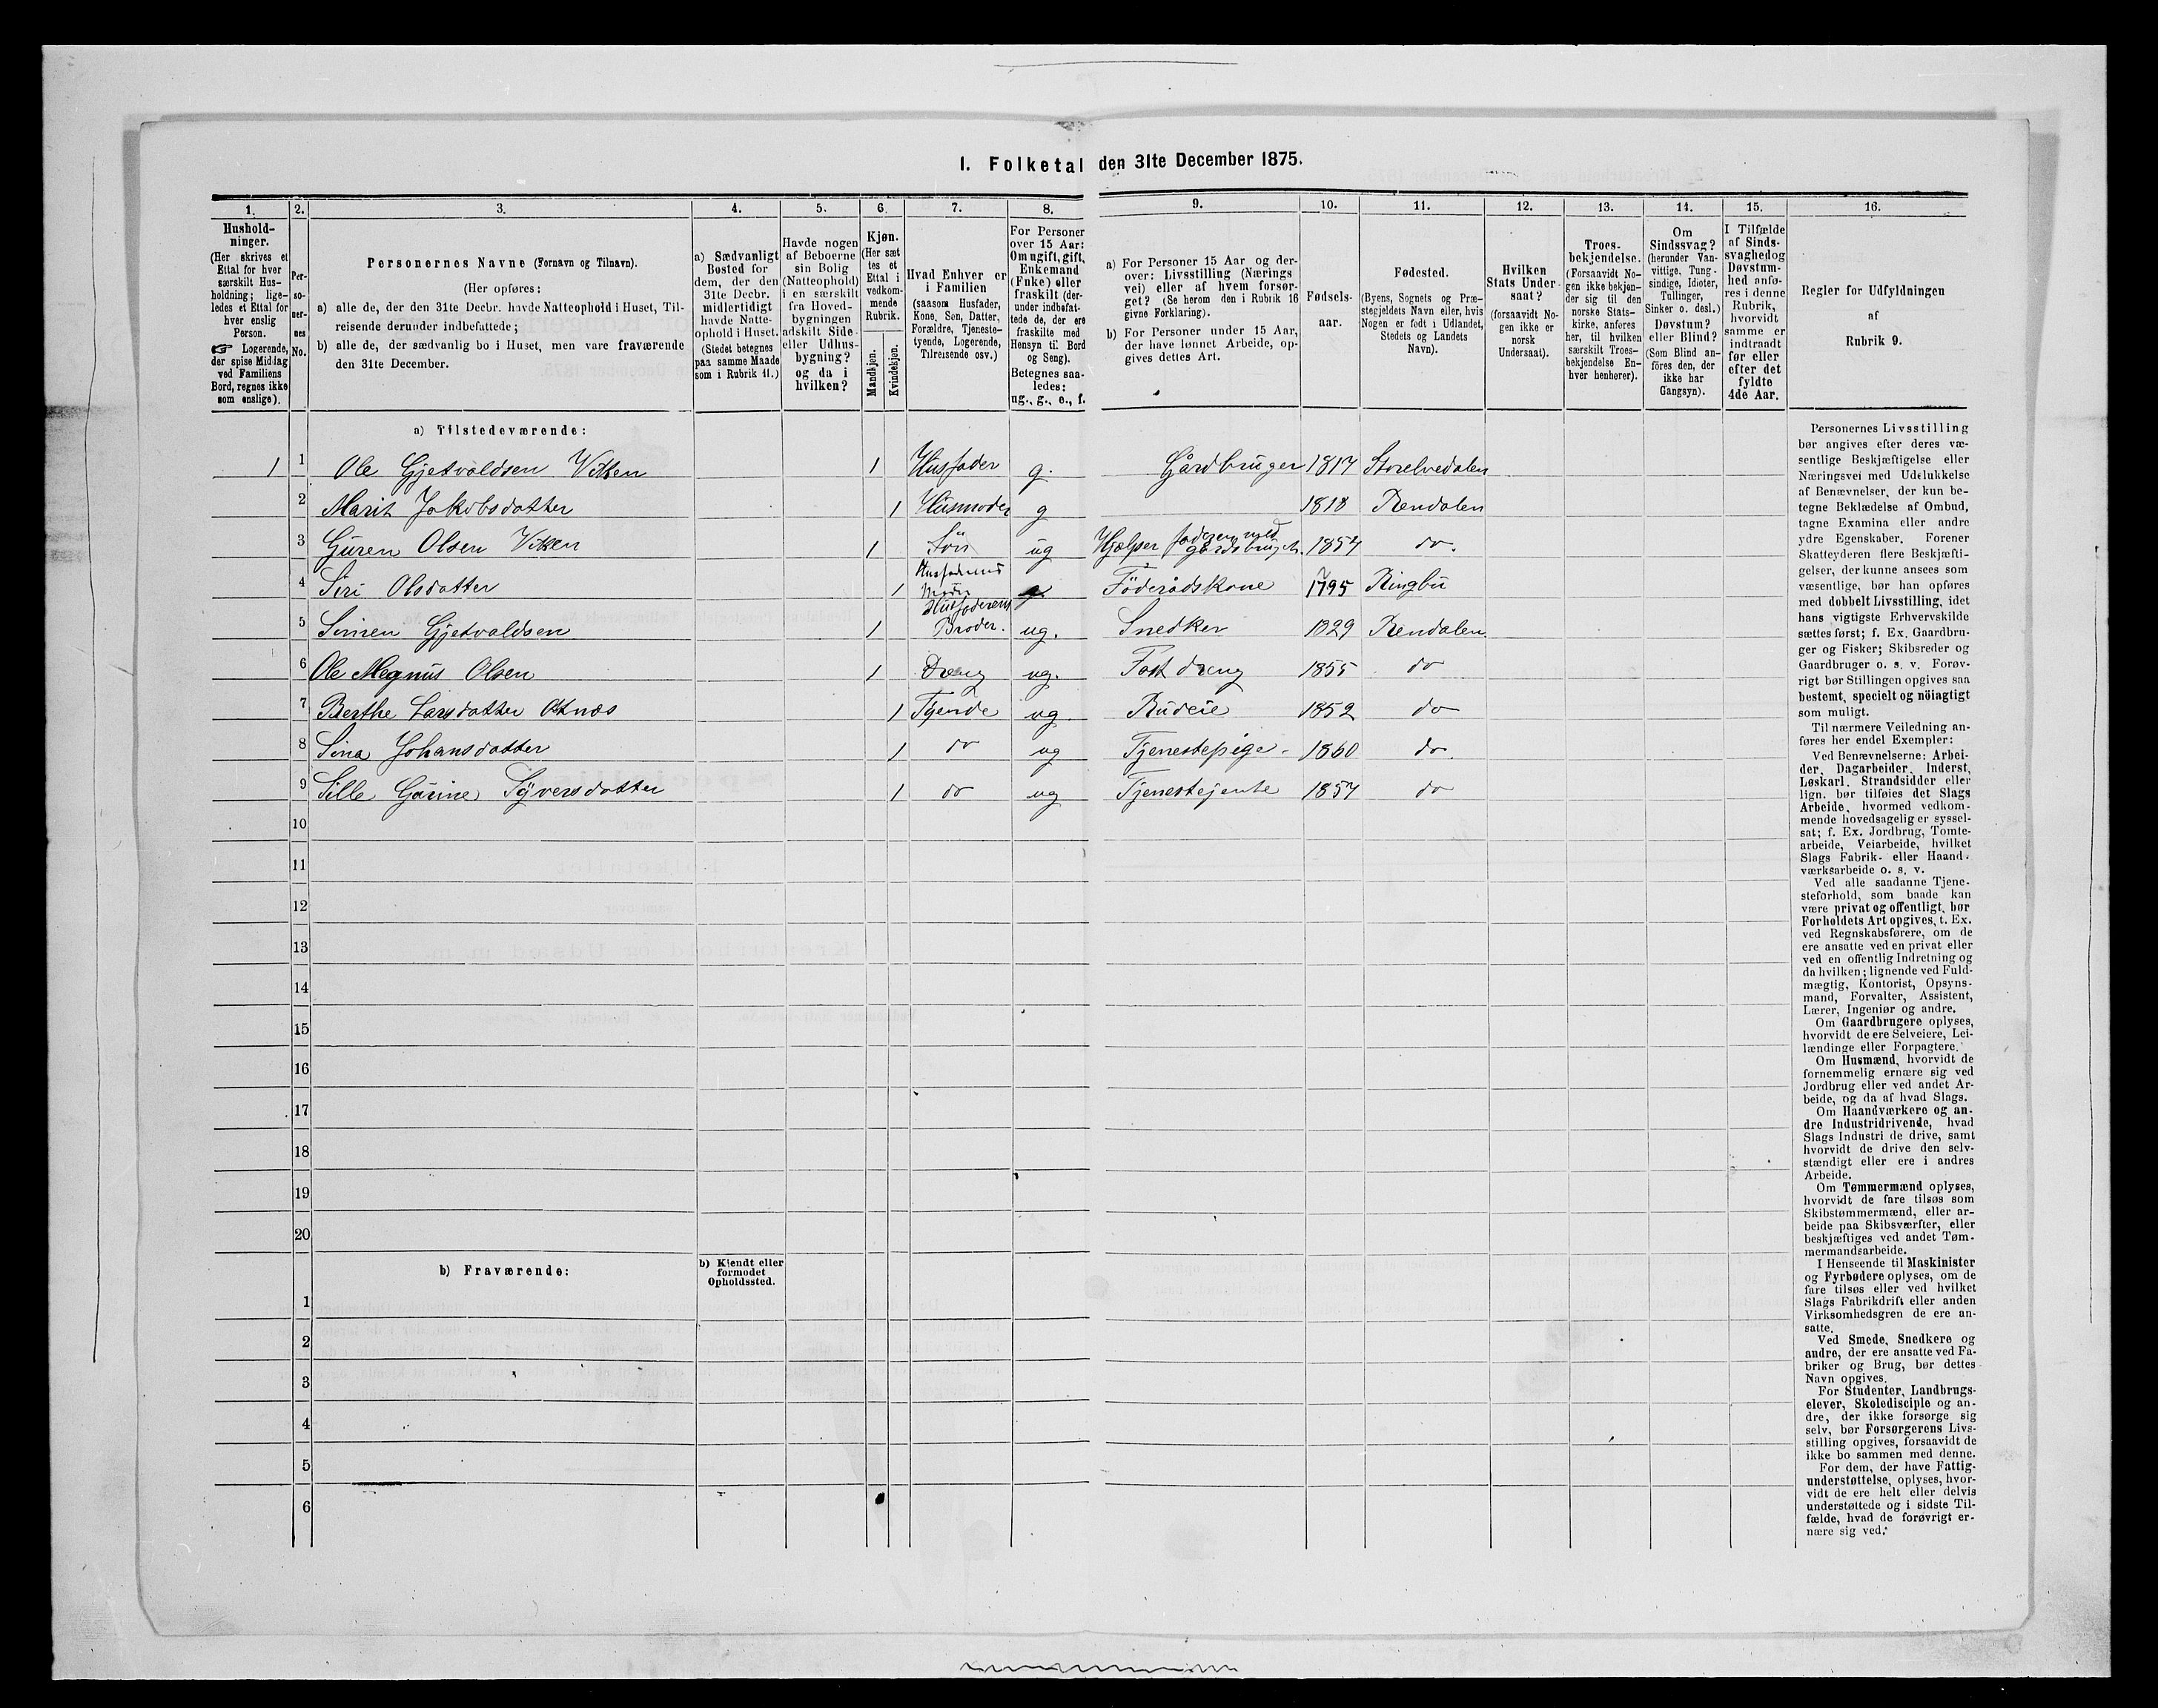 I. Folketal den 31te December 1875.
1. 2. 3. 4. 5. 6. 7. 8. 9. 10. 11. 12. 13. 14. 15. 16.
Hushold-
ninger.
(Her skrives et
Ettal for hver
særskilt Hus-
holdning; lige-
ledes et Ettal for
hver enslig
Person.
☞ Logerende,
der spise Middag
ved Familiens
Bord, regnes ikke
som enslige).
Per-
so-
ner-
nes
No.
Personernes Navne (Fornavn og Tilnavn).
(Her opføres:
a) alle de, der den 31te Decbr. havde Natteophold i Huset, Til-
reisende derunder indbefattede;
b) alle de, der sædvanlig bo i Huset, men vare fraværende
den 31te December.
a) Sædvanligt
Bosted for
dem, der den
31te Decbr.
midlertidigt
havde Natte-
ophold i Huset.
(Stedet betegnes
paa samme Maade
som i Rubrik 11.)
Havde nogen
af Beboerne
sin Bolig
(Natteophold)
i en særskilt
fra Hoved-
bygningen
adskilt Side-
eller Udhus-
bygning?
og da i
hvilken?
Kjøn.
(Her sæt
tes et
Ettal i
vedkom-
mende
Rubrik.
Mandkjøn.
Kvindekjøn.
Hvad Enhver er
i Familien
(saasom Husfader,
Kone, Søn, Datter,
Forældre, Tjeneste-
tyende, Logerende,
Tilreisende osv.)
For Personer
over 15 Aar:
Om ugift, gift,
Enkemand
(Enke) eller
fraskilt (der-
under indbefat-
tede de, der ere
fraskilte med
Hensyn til Bord
og Seng).
Betegnes saa-
ledes:
ug., g., e., f.
a) For Personer 15 Aar og der-
over: Livsstilling (Nærings
vei) eller af hvem forsør-
get? (Se herom den i Rubrik 16
givne Forklaring).
b) For Personer under 15 Aar,
der have lønnet Arbeide, op-
gives dettes Art.
Fødsels-
aar.
Fødested.
(Byens, Sognets og Præ-
stegjeldets Navn eller, hvis
Nogen er født i Udlandet,
Stedets og Landets
Navn).
Hvilken
Stats Under-
saat?
(forsaavidt No-
gen ikke er
norsk
Undersaat).
Troes-
bekjendelse.
(Forsaavidt No-
gen ikke bekjen-
der sig til den
norske Stats-
kirke, anføres
her, til hvilken
særskilt Troes-
bekjendelse En-
hver henhører).
Om
Sindssvag?
(herunder Van-
vittige, Tung-
sindige, Idioter,
Tullinger,
Sinker o. desl.)
Døvstum?
eller Blind?
(Som Blind an-
föres den, der
ikke har
Gangsyn).
I Tilfælde
af Sinds-
svaghed og
Døvstum-
hed anfø-
res i denne
Rubrik,
hvorvidt
samme er
indtraadt
før eller
efter det
fyldte
4de Aar.
Regler for Udfyldningen
af
Rubrik 9.
a) Tilstedeværende:
1 1 Ole Gjetvoldsen Vikken 1 Husfader g. Gårdbruger 1817 Storelvedalen
2 Marit Jakobsdatter 1 Husmoder g 1818 Rendalen
3 Guren Olsen Vikken 1 Sön ug Hjælper faderen med gårdsbruget. 1854 do.
4 Siri Olsdatter 1 Husfaderens Moder Föderådskone 1795 Ringbu
5 Simen Gjetvoldsen 1 Husfaderens Broder. ug. Snedker 1829 Rendalen
6 Ole Magnus Olsen 1 Dreng ug. Fast dreng 1855 do
7 Berthe Larsdatter Aknæs 1 Tyende ug Budeie 1852 do
8 Sina Johansdatter 1 do ug Tjenestepige 1860 do.
9 Sille Gurine Syversdatter 1 do ug Tjenestejente 1857 do
10
11
12
13
14
15
16
17
18
19
20
b) Fraværende:
b) Kjendt eller
formodet
Opholdssted.
1
2
3
4
5
6
Personernes Livsstilling
bør angives efter deres væ-
sentlige Beskjæftigelse eller
Næringsvei med Udelukkelse
af Benævnelser, der kun be-
tegne Beklædelse af Ombud,
tagne Examina eller andre
ydre Egenskaber. Forener
Skatteyderen flere Beskjæfti-
gelser, der kunne ansees som
væsentlige, bør han opføres
med dobbelt Livsstilling, idet
hans vigtigste Erhvervskilde
sættes først; f. Ex. Gaardbru-
ger og Fisker; Skibsreder og
Gaardbruger o. s. v. Forøv-
rigt bør Stillingen opgives saa
bestemt, specielt og nöiagtigt
som muligt.
Til nærmere Veiledning an-
føres her endel Exempler:
Ved Benævnelserne: Arbei-
der, Dagarbeider, Inderst,
Løskarl, Strandsidder eller
lign. bør tilføies det Slags
Arbeide, hvormed vedkom-
mende hovedsagelig er syssel-
sat; f. Ex. Jordbrug, Tomte-
arbeide, Veiarbeide, hvilket
Slags Fabrik- eller Haand-
værksarbeide o. s. v.
Ved alle saadanne Tjene-
steforhold, som baade kan
være privat og offentligt, bør
Forholdets Art opgives, t. Ex.
ved Regnskabsførere, om de
ere ansatte ved en privat eller
ved en offentlig Indretning og
da hvilken; lignende ved Fuld-
mægtig, Kontorist, Opsyns-
mand, Forvalter, Assistent,
Lærer, Ingeniør og andre.
Om Gaardbrugere oplyses,
hvorvidt de ere Selveiere, Lei-
lændinge eller Forpagtere.
Om Husmænd, hvorvidt de
fornemmelig ernære sig ved
Jordbrug eller ved andet Ar-
beide, og da af hvad Slags.
Om Haandværkere og an-
dre Industridrivende, hvad
Slags Industri de drive, samt
hvorvidt de drive den selv-
stændigt eller ere i andres
Arbeide.
Om Tømmermænd oplyses,
hvorvidt de fare tilsøs som
Skibstømmermænd, eller ar-
beide paa Skibsværfter, eller
beskjæftiges ved andet Tøm-
mermandsarbeide.
I Henseende til Maskinister
og Fyrbødere oplyses, om de
fare tilsøs eller ved hvilket
Slags Fabrikdrift eller anden
Virksomhedsgren de ere an-
satte.
Ved Smede, Snedkere og
andre, der ere ansatte ved Fa-
briker og Brug, bør dettes
Navn opgives.
For Studenter, Landbrugs-
elever, Skoledisciple og an-
dre, der ikke forsørge sig
selv, bør Forsørgerens Livs-
stilling opgives, forsaavidt de
ikke bo sammen med denne.
For dem, der have Fattig-
understøttelse, oplyses, hvor-
vidt de ere helt eller delvis
understøttede og i sidste Til-
fælde, hvad de forøvrigt er-
nære sig ved.